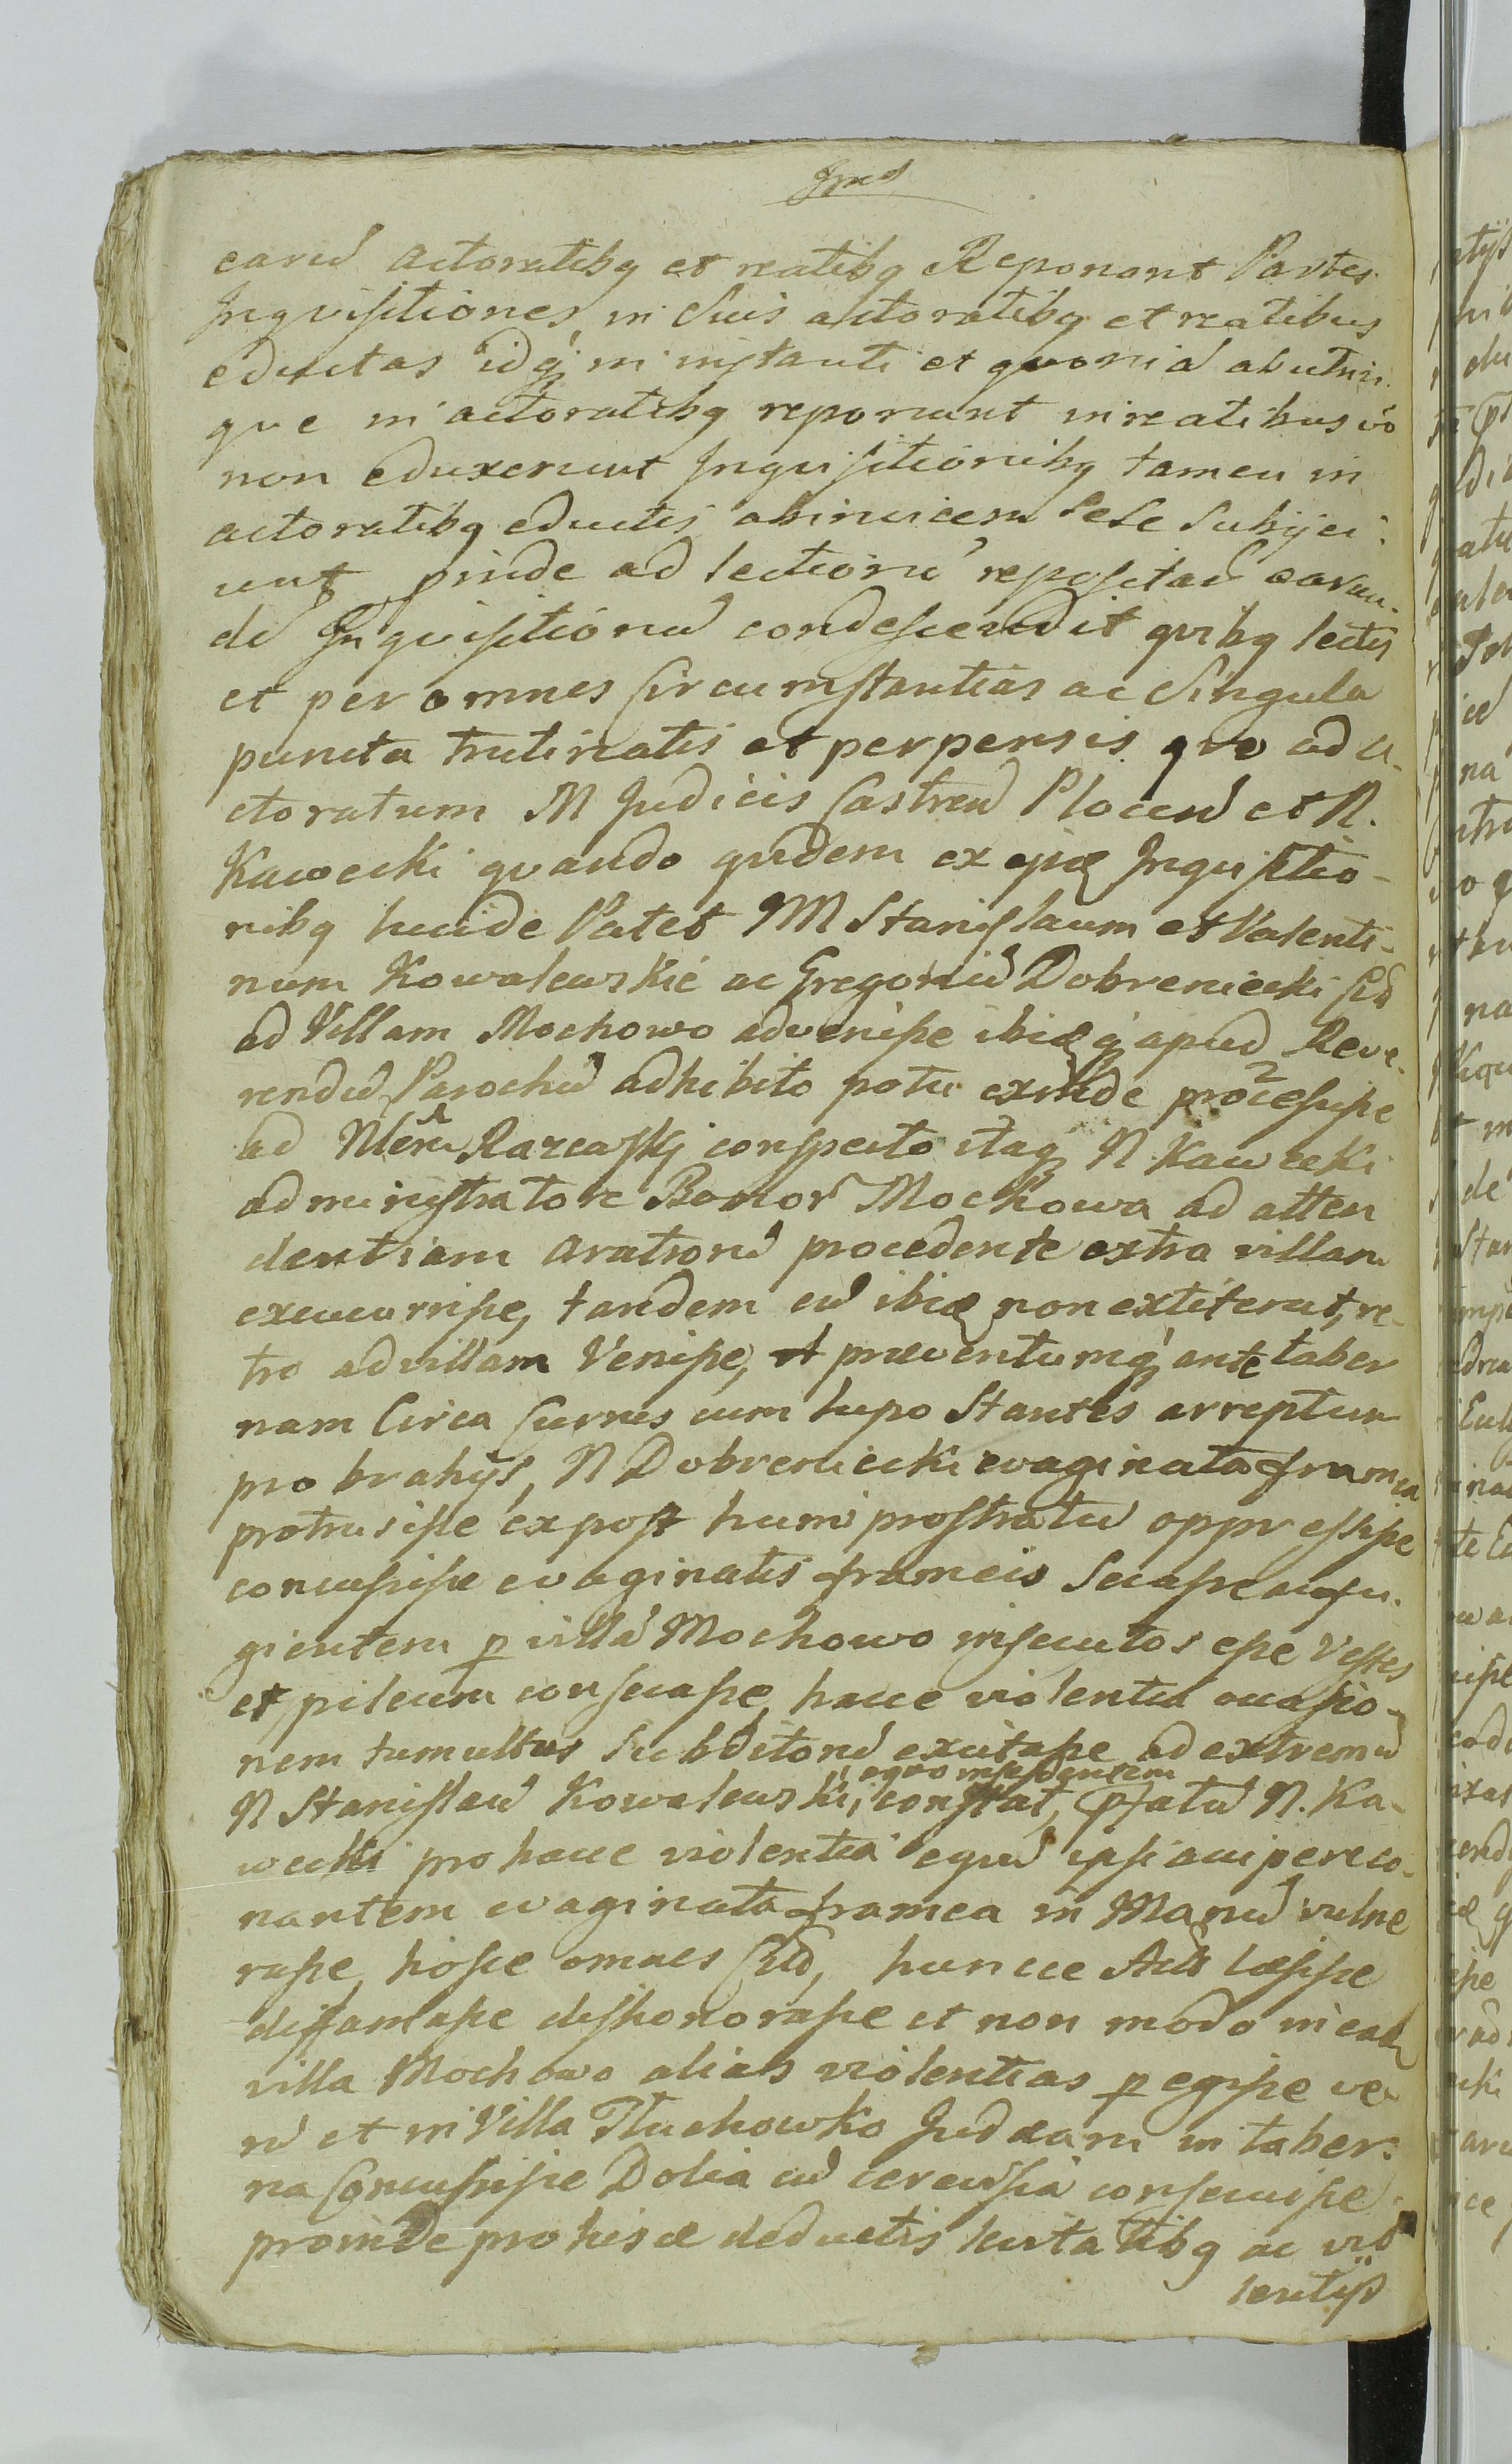 earud actoratibq et reatibq Reponant Partes
Inquisitiones in suis actoratibq et reatibus
eductas idq in instanti et quoniã abutrin
que in actoratibq reponunt in reatibus vó
non eduxerunt Inquisitionibq tamen in
actoratibq eductis abinuicem sese subijci-
unt pinde ad lectionẽ repositar earun-
dẽ Inquisitionũ condescendit quibq lectis
et per omnes Circumstantias ac singula
puncta trutinatis et perpensis quo ad a-
ctoratum M Judicis Castren Plocen et N.
Kawecki quando quidem ex ejsdẽ Inquisitio-
nibq lucide Patet MM Stanislaum et Valenti-
num Kowalewskie ac Gregoriũ Dobreniecki Cit
ad Villam Mochowo advenisse ibidq apud Reve-
rendũ Parochũ adhibito potu exinde processisse
ad Razcaski conspecto itaq N. Kawecki
administratore Bonor Mochowa ad atten
dentiam arationũ procedente extra villam
excucurrisse, tandem cũ ibid non extiterat, re-
tro ad villam Venisse, et præventumq ante taber
nam Circa Currus cum lupo Stantes arreptum
pro brahijs, N Dobreniecki evaginata framea
protrusisse expost humi prostratũ oppressisse
concussisse evaginatis frameis Secasse aufu-
gientem p villã Mochowo insecutos esse Vestes
et pileum consecasse, hacce violentia occasio-
nem tumultus subditorũ excitasse ad extremũ
equo insidentem
N Stanislaũ Kowalewski, constat, pfatũ N. Ka-
wecki pro hacce violentia equũ ipsi accipere co-
nantem evaginata framea in Manũ vulne
rasse, hosce omnes Citõ, huncce Actõ læsisse
diffamasse dishonorasse et non modo in ead
villa Mochowo alias violentias p egisse ve
rũ et in Villa Tluchowko Judæam in taber-
na Concussisse Dolia cũ cerevisia consecuisse
proinde pro hisce deductis læsitatibq ac vio
lentijs